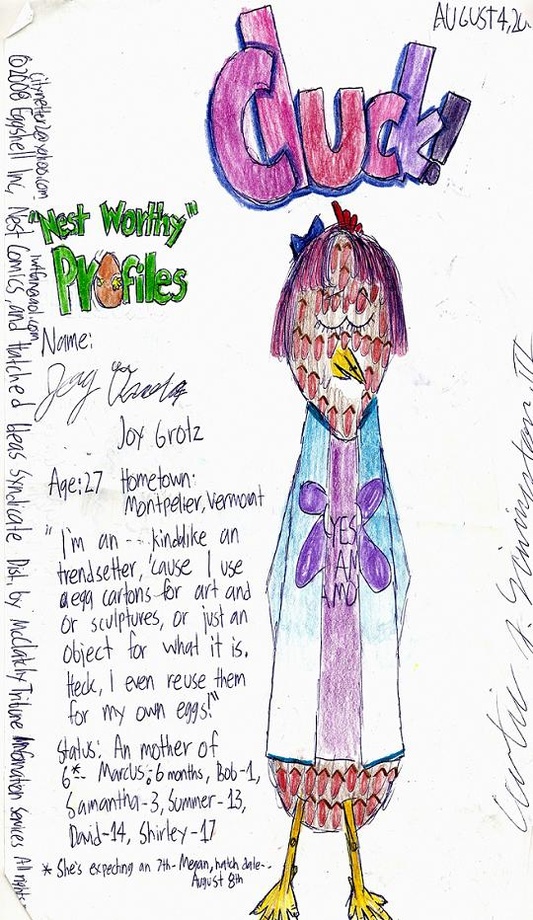 AUGUST 4, 20
Cluck!
"Nest Worthy"
Profiles
Name:
Joy Grotz
Age: 27 Hometown:
Montpelier, Vermont
"I'm an -- kindalike an
trendsetter, 'cause I use
aegg cartons for art and
or sculptures, or just an
object for what it is.
Heck, I even reuse them
for my own eggs!"
Status: An mother of
6*- Marcus: 6 months, Bob-1,
Samantha-3, Summer-13,
David-14, Shirley-17
* She's expecting an 7th- Megan, hatch date--
August 8th
YES
I AM
AMO
©2008 Eggshell Inc, Nest Comics, and Hatched Ideas Syndicate Dist. by McClatchy Tribune Information Services All right